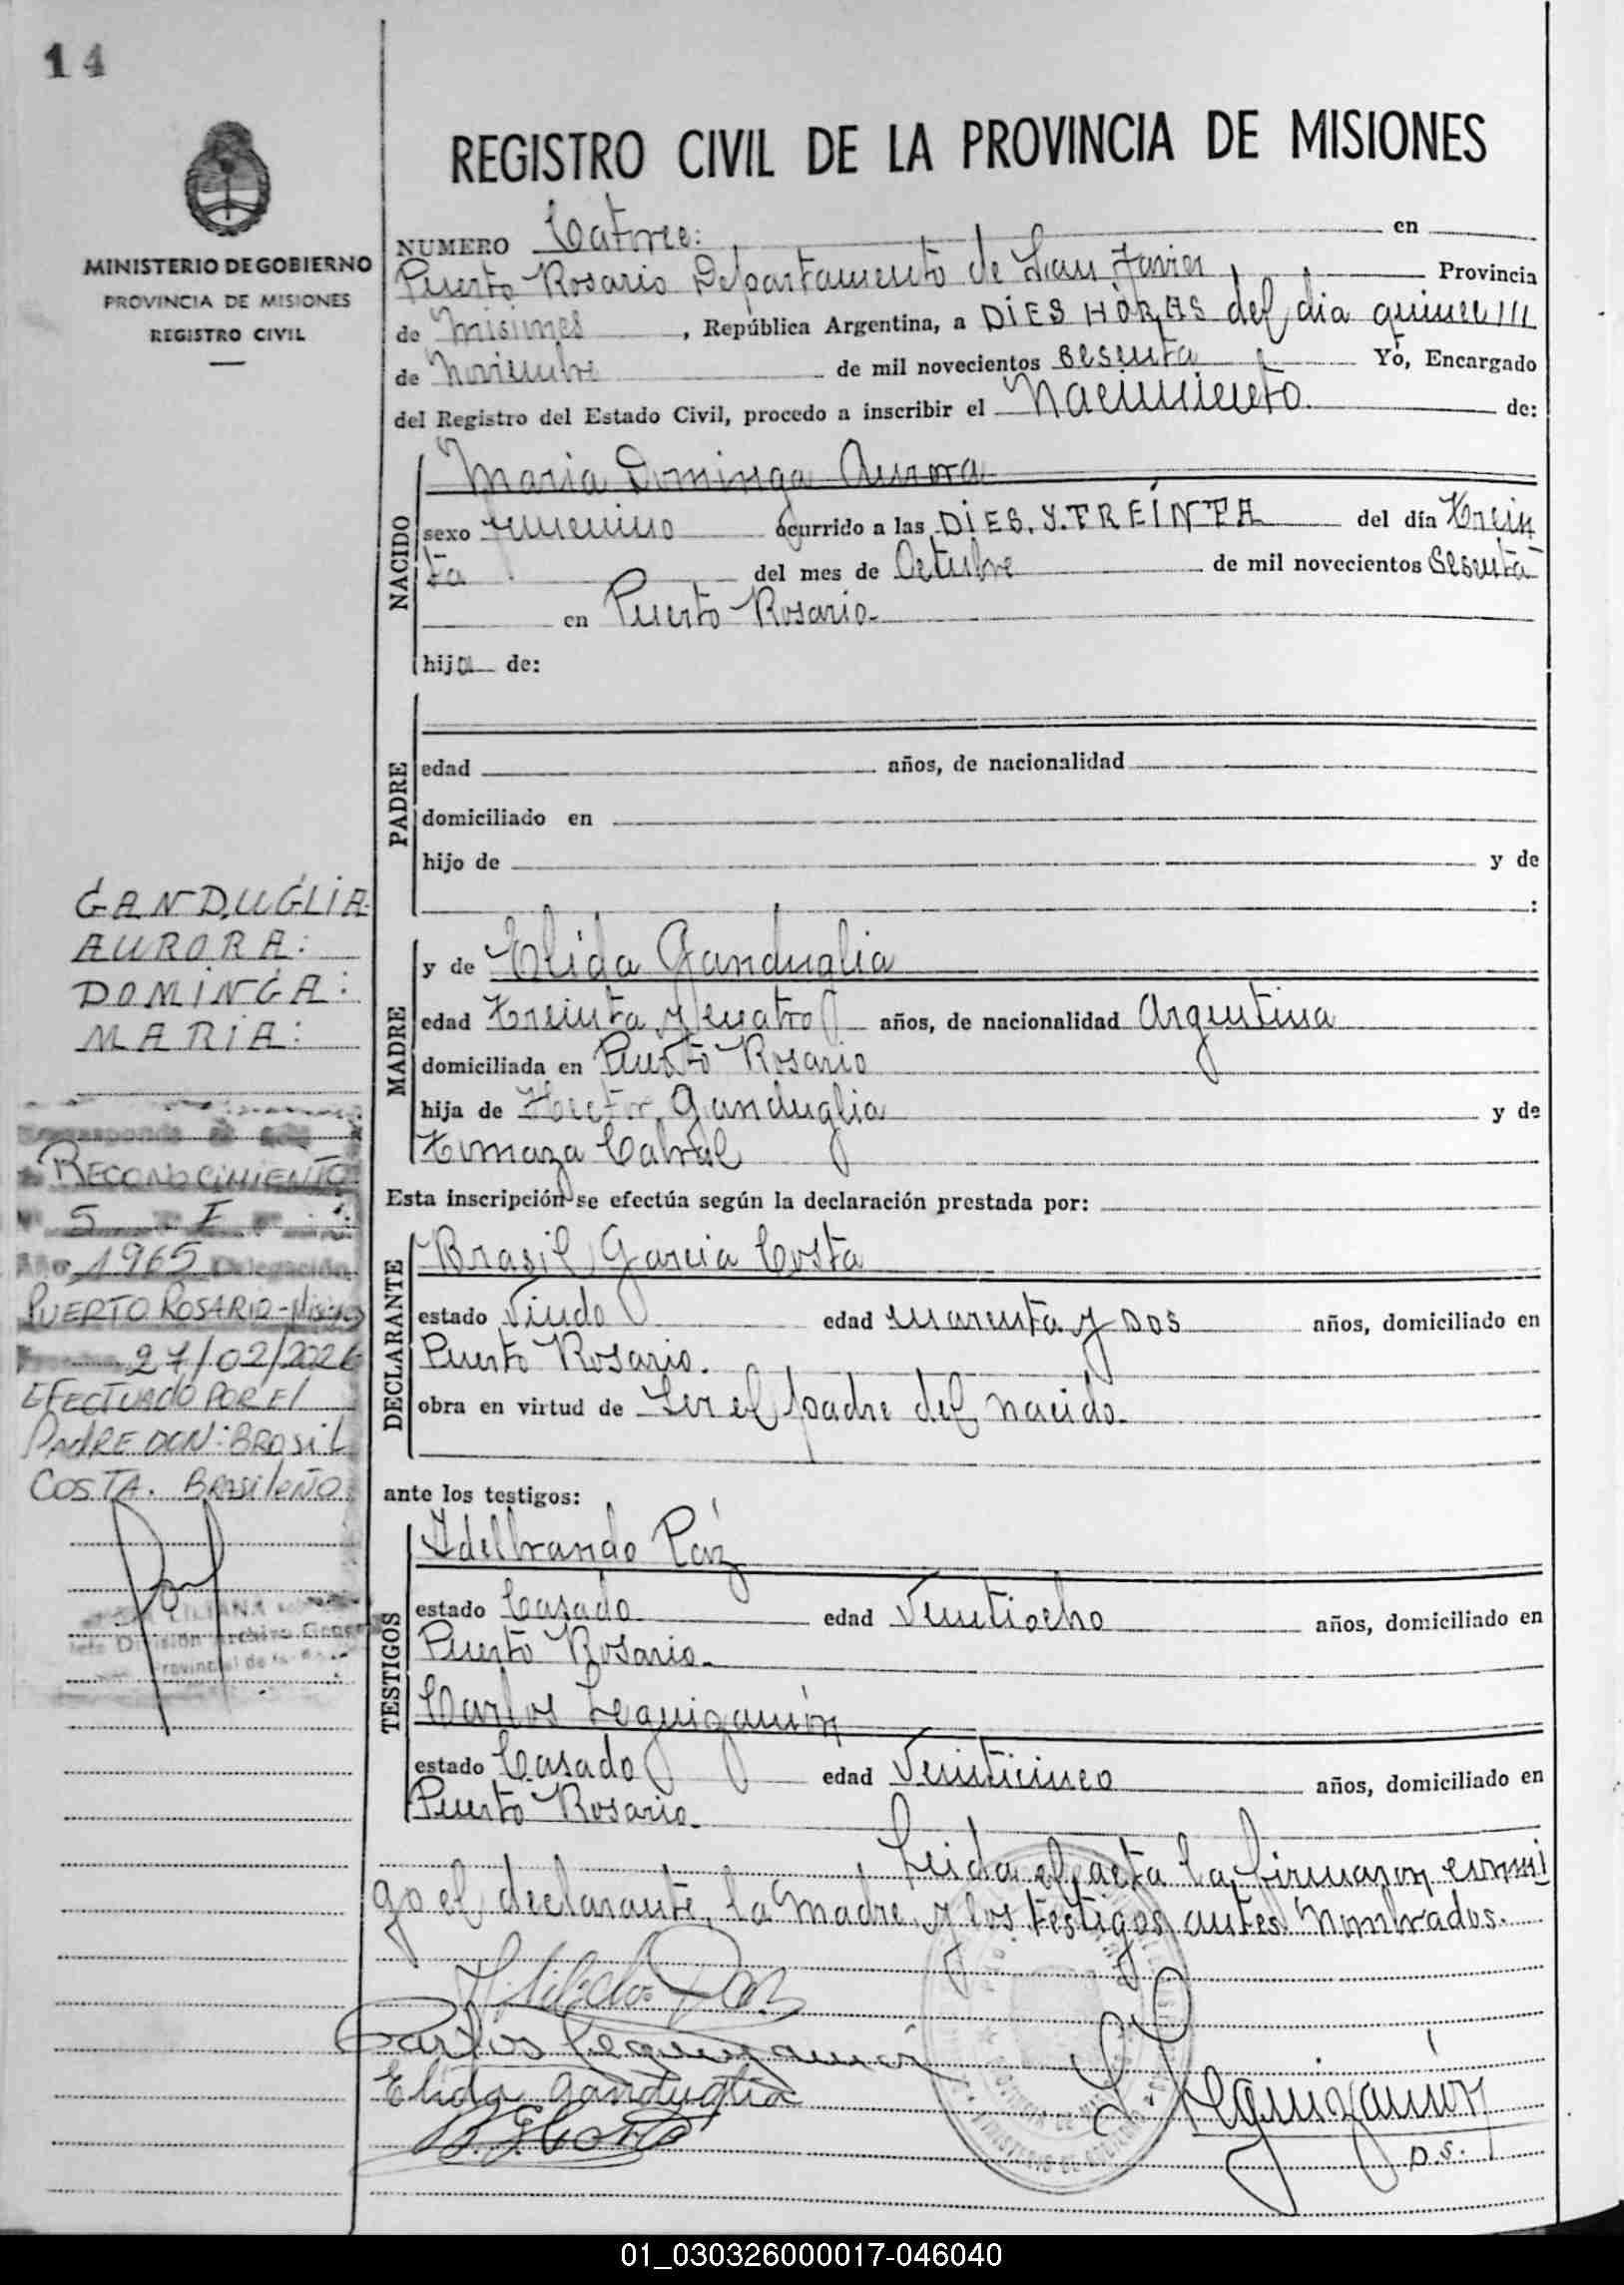 14
MINISTERIO DE GOBIERNO
PROVINCIA DE MISIONES
REGISTRO CIVIL
REGISTRO CIVIL DE LA PROVINCIA DE MISIONES
NUMERO Catorce: en
Puerto Rosario Departamento de San Javier Provincia
de Misiones, República Argentina, a DIES HORAS del dia quince
de Noviembre de mil novecientos sesenta Yo, Encargado
del Registro del Estado Civil, procedo a inscribir el Nacimiento. de:
NACIDO
Maria Dominga Aurora
sexo femenino ocurrido a las DIES. Y. TREINTA del día trein
ta del mes de Octubre de mil novecientos sesenta
en Puerto Rosario.
hija de:
PADRE
edad años, de nacionalidad
domiciliado en
hijo de y de
:
MADRE
y de Elida Ganduglia
edad treinta y cuatro años, de nacionalidad Argentina
domiciliada en Puerto Rosario
hija de Hector Ganduglia y de
Tomaza Cabral
Esta inscripción se efectúa según la declaración prestada por:
DECLARANTE
Brasil Garcia Costa
estado Viudo edad cuarenta y dos años, domiciliado en
Puerto Rosario.
obra en virtud de Ser el padre del nacido.
ante los testigos:
TESTIGOS
Idelbrando Páz
estado Casado edad Veintiocho años, domiciliado en
Puerto Rosario.
Carlos Leguizamón
estado Casado edad Veinticinco años, domiciliado en
Puerto Rosario.
Leida el acta la firmaron conmi
go el declarante, la madre y los testigos antes nombrados.
Carlos Leguizamón
Elida Ganduglia
B. G. Costa
Leguizamón
D.S.
GANDUGLIA
AURORA:
DOMINGA:
MARIA:
Corresponde
RECONOCIMIENTO
5 I
Año 1965 Delegación
PUERTO ROSARIO-Misiones
27/02/2026
EFECTUADO POR El
PADRE DON: BRASIL
COSTA. BRASIleÑO
LILIANA
Jefe División Archivo General
Provincial de las
01_030326000017-046040